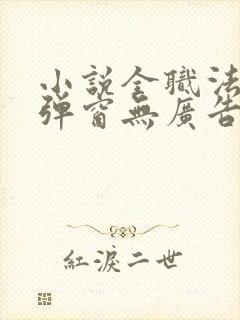 小說全職法
彈窗無廣告
紅淚二世